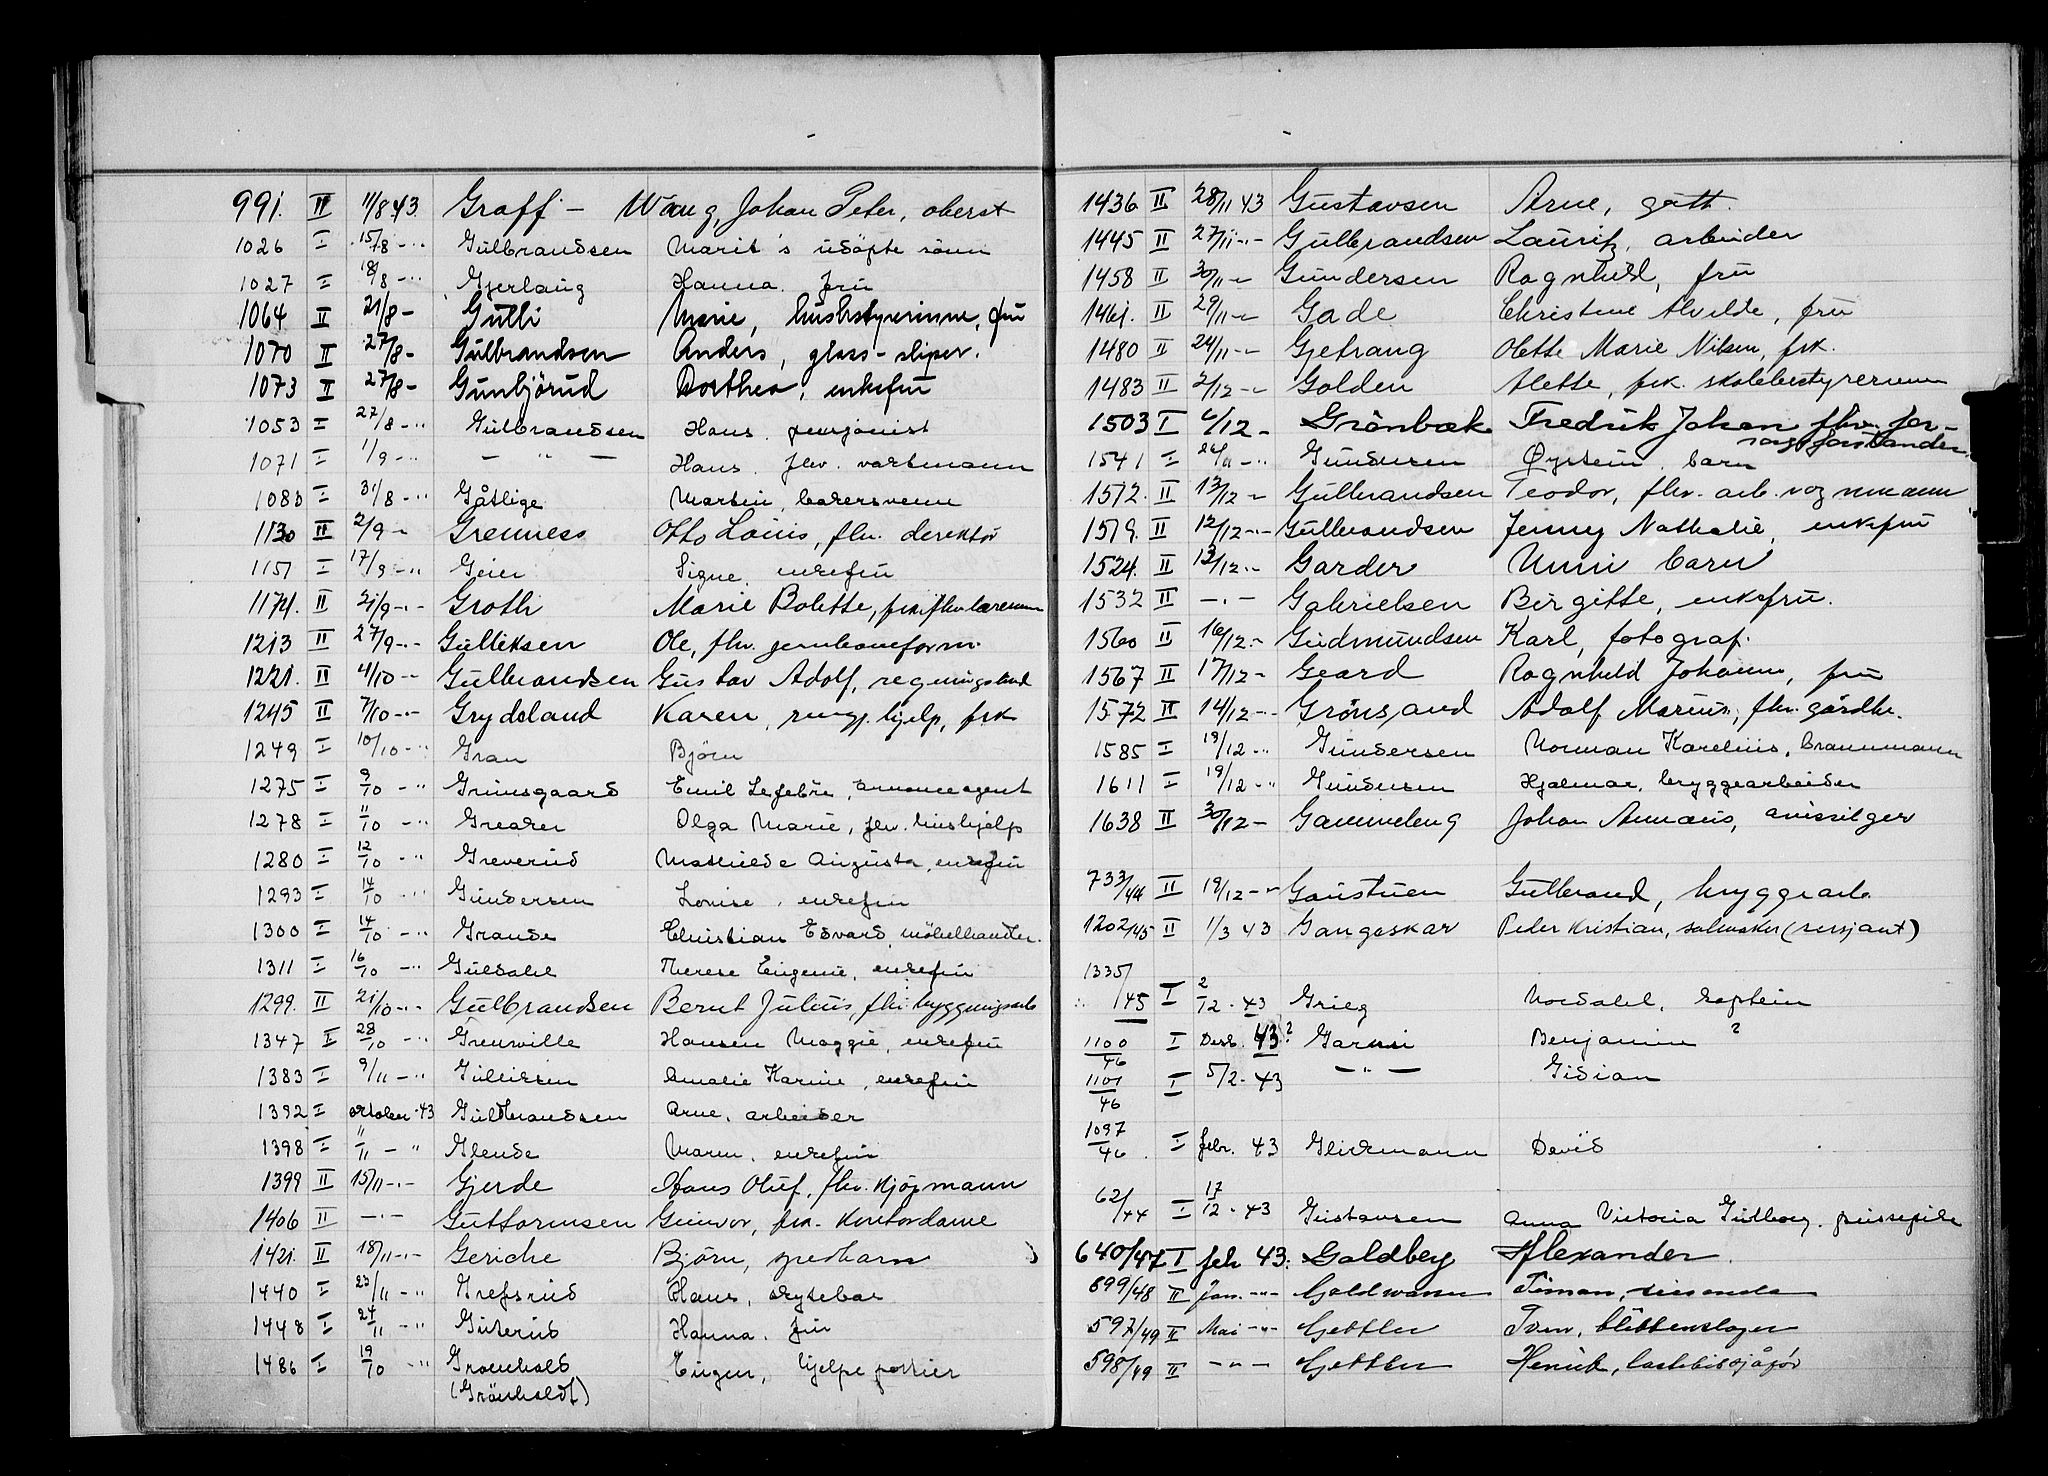 991. II 11/8 43. Graff - Wang, Johan Peter, oberst
1026 I 15/8 -"- Gulbrandsen Marit's udöpte sönn
1027 I 18/8 -"- Gjerlaug Hanna. fru
1064 II 21/8 - Gulli Marie, husbestyrerinne, fru
1070 II 27/8 - Gulbrandsen Anders, glass-sliper.
1073 II 27/8 - Gunbjörud Dorthea, enkefru
1053 I 27/8 -"- Gulbrandsen Hans. pensjonist
1071 I 1/9 -"- — " — Hans. fhv. vaktmann
1083 I 31/8 -"- Gåtlige Martin, bakersvenn
1130 II 2/9 - Grenness Otto Louis, fhv. direktör
1151 I 17/9 -"- Geier Signe. enkefru
1174. II 21/9 -"- Groth Marie Bolette, frk. fhv. lærerinne
1213 II 27/9 -"- Gulliksen Ole, fhv. jernbaneform.
1221. II 4/10 -"- Gulbrandsen Gustav Adolf, regningsbud
1245 II 7/10 -"- Grydeland Karen, rengj. hjelp, frk
1249 I 10/10 -"- Gran Björn
1275 I 9/10 -"- Grimsgaard Emil Lefebre, annonceagent
1278 I 11/10 -"- Greaker Olga Marie, fhv. hushjelp
1280 I 12/10 -"- Greverud Mathilde Augusta, enkefru
1293 I 14/10 -"- Gundersen Lovise, enkefru
1300 I 14/10 -"- Grande Christian Edvard, möbelhandler.
1311 I 16/10 -"- Guldahl Therese Eugenie, enkefru
1299. II 21/10 -"- Gulbrandsen Bernt Julius, fhv. byggningsarb
1347 I 28/10 -"- Grenwille Hansen Maggie, enkefru
1383 I 9/11 -"- Gulliksen Amalie Karine, enkefru
1392 I oktober 43 Guldbrandsen Arne, arbeider
1398 I 11/11 - " Glende Maren, enkefru
1399 II 15/11 -"- Gjerde Hans Oluf, fhv. kjöpmann
1406 II —"— Guttormsen Gunvor, frk. Kontordame
1421. II 18/11 -"- Geriche Björn, spedbarn
1440 I 23/11 -"- Grefsrud Hans, skytebas
1448 I 24/11 -"- Guterud Hanna. fru
1486 I 19/10 -"- Gronhold Eugen, hjelpeportier
(Grönholdt)
1436 II 28/11 43 Gustavsen Arne, gutt.
1445 II 27/11 -"- Gulbrandsen Lauritz, arbeider
1458 II 30/11 -"- Gundersen Ragnhild, fru
1461. II 29/11 -"- Gade Christine Alvilde, fru
1480 II 24/11 -"- Gjetrang Olette Marie Nilsen, frk.
1483 II 2/12 -"- Golden Alette, frk. skolebestyrerinne
1503 I 6/12 - Grönbæk Fredrik Johan fhv. for-
sorgsforstander.
1541 I -"- Gundersen Øystein. barn
1512. II 13/12 -"- Gulbrandsen Teodor, fhv. arb. vognmann
1519. II 12/12 -"- Gulbrandsen Jenny Nathalie, enkefru
1524. II 13/12 -"- Garder Unni barn
1532 II —"— Gabrielsen Birgitte, enkefru.
1560 II 16/12 -"- Gudmundsen Karl, fotograf.
1567 II 17/12 - Geard Ragnhild Johanne, fru
1572 II 14/12 -"- Grönsand Adolf Marius, fhv. gårdbr.
1585 I 19/12 -"- Gundersen Norman Karelius, brannmann
1611 I 19/12 -"- Gundersen Hjalmar, bryggearbeider
1638 II 30/12 - Gammeleng Johan Annæus, avisselger
733/44 II 19/12 -"- Gaustuen Gulbrand, bryggearb.
1202/45 II 1/3 43 Gangaskar Peder Kristian, salmaker (sersjant)
1335/45 I 2/12 - 43 Grieg Nordahl, kaptein
1100/46 I Des. 43? Garnsi Benjamin ?
1101/46 I 5/2 - 43 —"— Gidian
1097/46 I febr. 43 Glickmann David
62/44 I 17/12 - 43 Gustavsen Anna Victoria Gudborg. pussepike
640/47 I feb 43. Goldberg Alexander
899/48 II Jan. -"- Goldmann
597/49 II Mai -"- Gettler Iven, blikkenslager
598/49 II —"— Gettler Henrik, lastebilsjåför